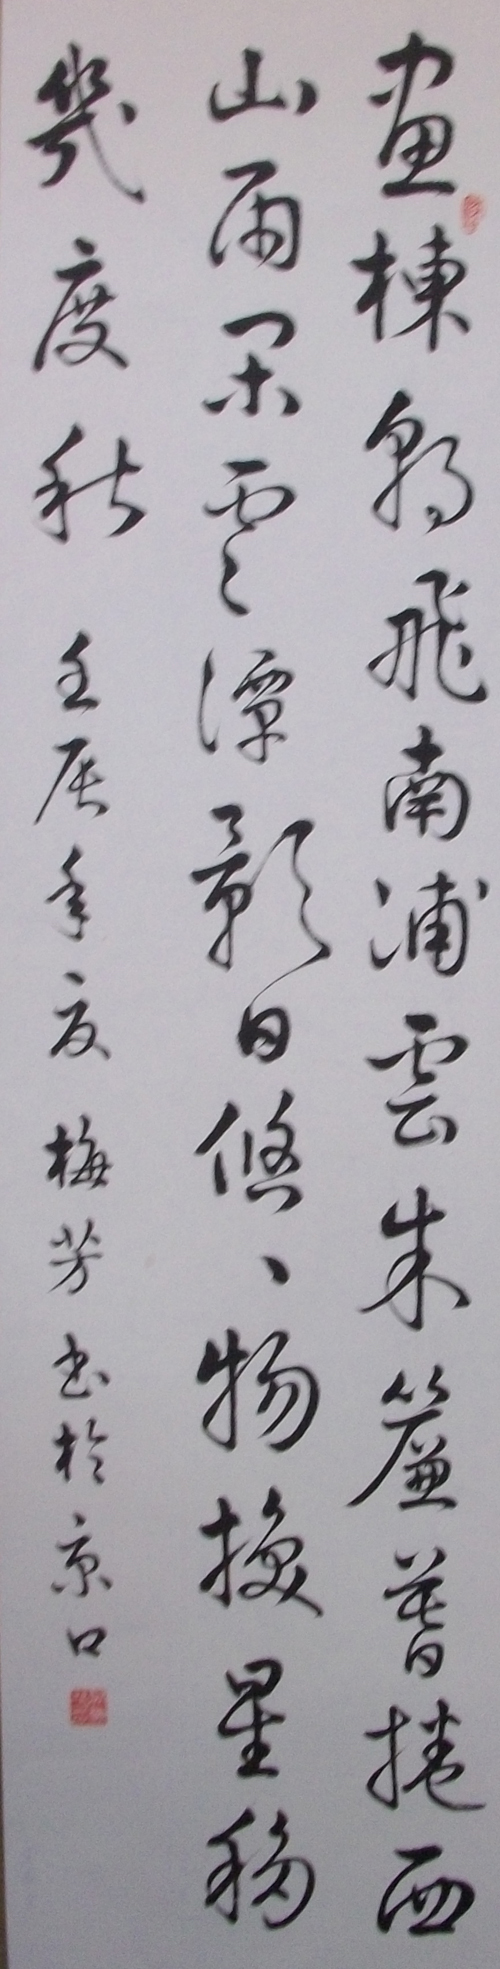 画棟朝飛南浦雲朱簾暮捲西
山雨闲雲潭影日悠、物换星移
幾度秋 壬辰年夏 梅芳书於京口